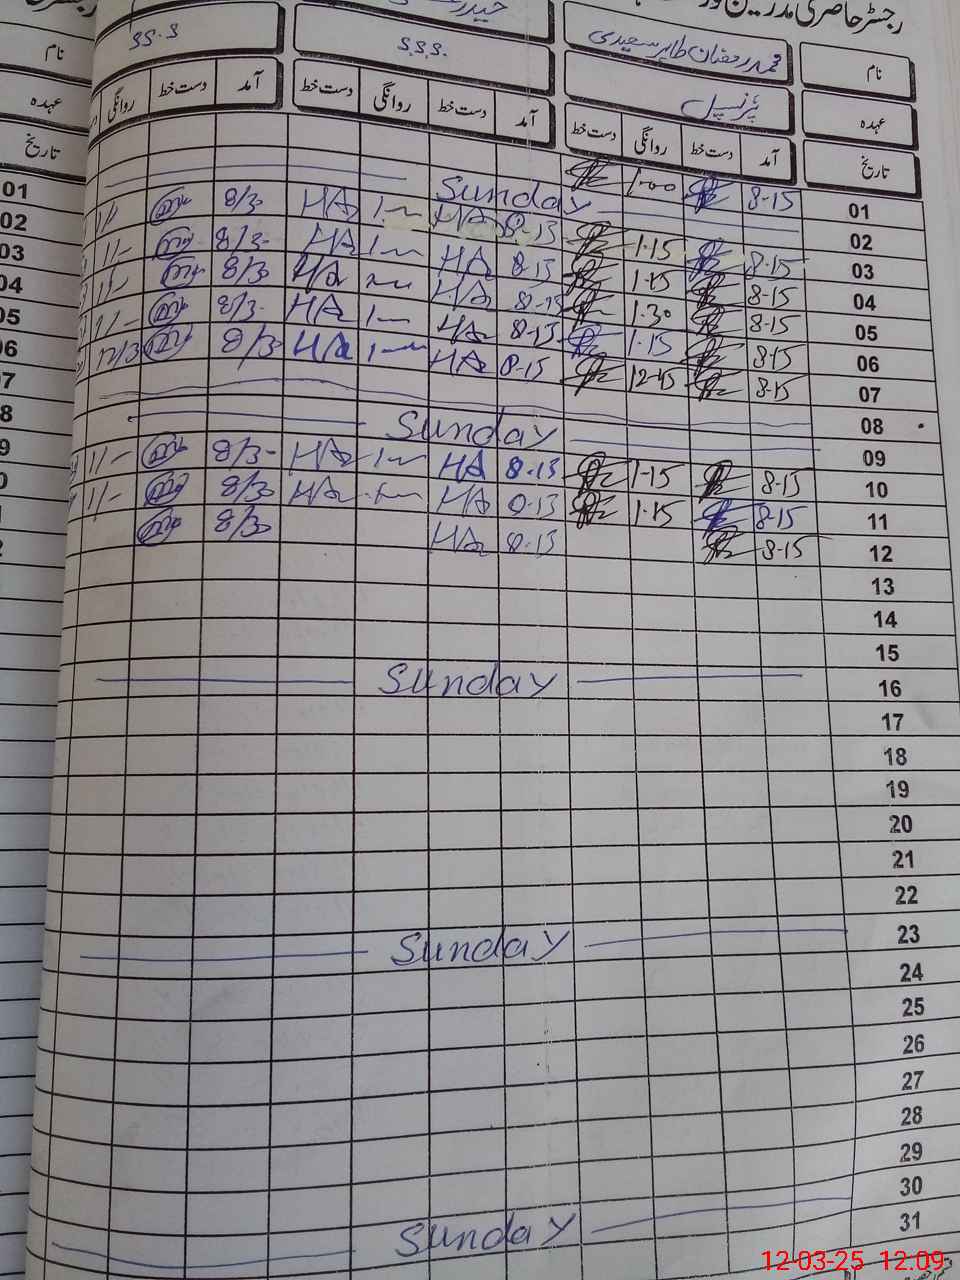 رجسٹر حاضری مدرسین و
نام
محمد رمضان طاہر سعیدی
عہدہ
پرنسپل
S.S.S.
S.S.S
تاریخ
آمد دست خط روانگی دست خط
آمد دست خط روانگی دست خط
آمد دست خط روانگی
01 8-15 1-00
02 Sunday
03 8-15 1-15 8-15 HA HA 8/30 11/-
04 8-15 1-15 8-15 HA HA 8/30 11/-
05 8-15 1-30 8-15 HA HA 8/30 11/-
06 8-15 1-15 8-15 HA HA 8/30 11/-
07 8-15 12-45 8-15 HA HA 8/30 12/3
08
09 Sunday
10 8-15 1-15 8-15 HA HA 8/30 11/-
11 8-15 1-15 8-15 HA HA 8/30 11/-
12 8-15 8-15 HA 8/30
13
14
15
16 Sunday
17
18
19
20
21
22
23 Sunday
24
25
26
27
28
29
30 Sunday
31
نام
عہدہ
تاریخ
01
02
03
04
05
06
07
12-03-25 12.09